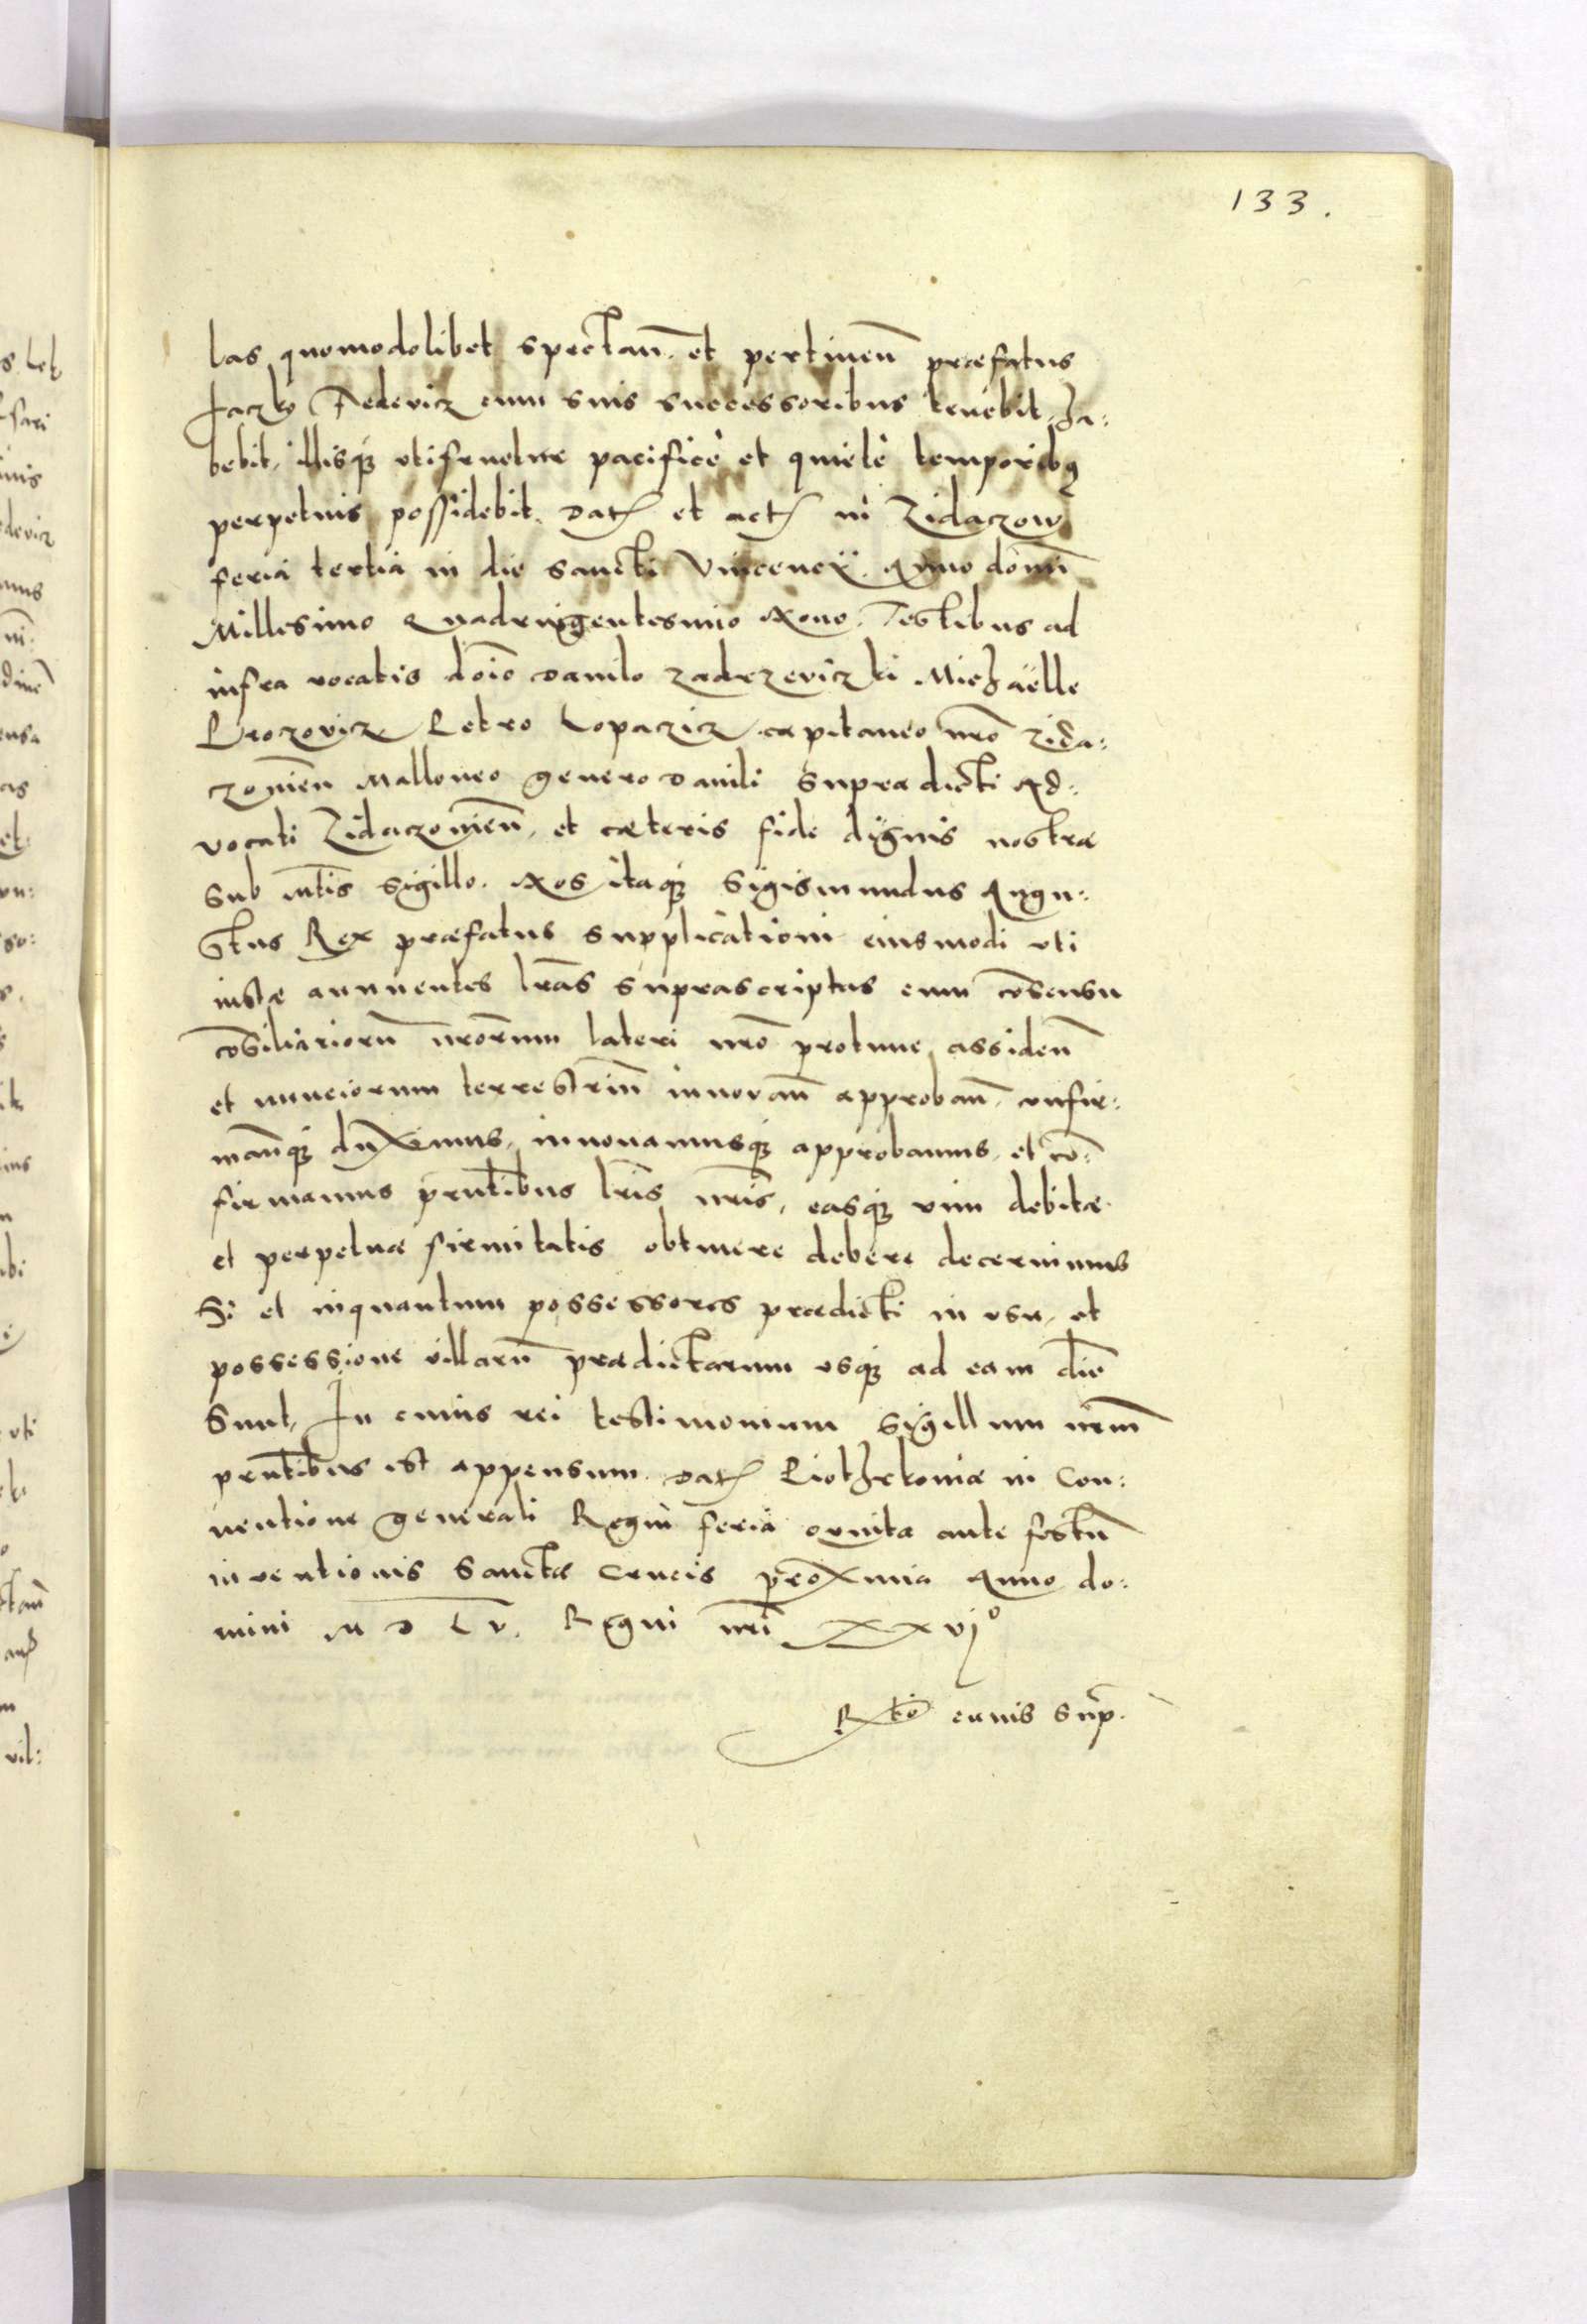 133.
las quomodolibet spectan̄. et pertinen̄ præfatus
Jaczko Fedevicz cum suis successoribus tenebit, ha:
bebit, illisq́3 utifruetur pacificè et quietè temporibꝫ
perpetuis possidebit. Dat et act in Zidaczow
feria tertia in die Sancti Vincencÿ. Anno domī
Millesimo Quadringentesimo Nono. Testibus ad
infra vocatis doīo Danilo Zadrzeviczki Michaëlle
Procovicz Petro Lopaczicz capitaneo nr̄o Zida:
czovien̄ Malloneo genero Danili supradicti Ad:
vocati Zidaczovien̄, et cæteris fide dignis nostræ
sub mt̄is sigillo. Nos itaq́3 Sigismundus Augu:
stus Rex præfatus supplicationi eiusmodi uti
iustæ annuentes lr̄as suprascriptas cum cōsensu
cōsiliariorū nrōrum lateri nr̄o protunc assiden̄
et nunciorum terrestriū innovan̄ approban̄. confir:
man̄q́3 duximus, innovamusq́3 approbamus, et cō:
firmamus prn̄tibus lr̄is nr̄is, easq́3 vim debitæ
et perpetuæ firmitatis obtinere debere decernimus
Si et inquantum possessores prædicti in usu, et
possessione villarū prædictarum usq́3 ad eam diē
sunt, In cuius rei testimonium sigillum nr̄m
prn̄tibus est appensum. Dat Piothrkoviæ in Con:
ventione generali Regni feria qvinta ante festū
inventionis Sanctæ Crucis proxima Anno do:
mini M D L v. Regni nr̄i xxvj°
R̄tō eiuis Sup̄.